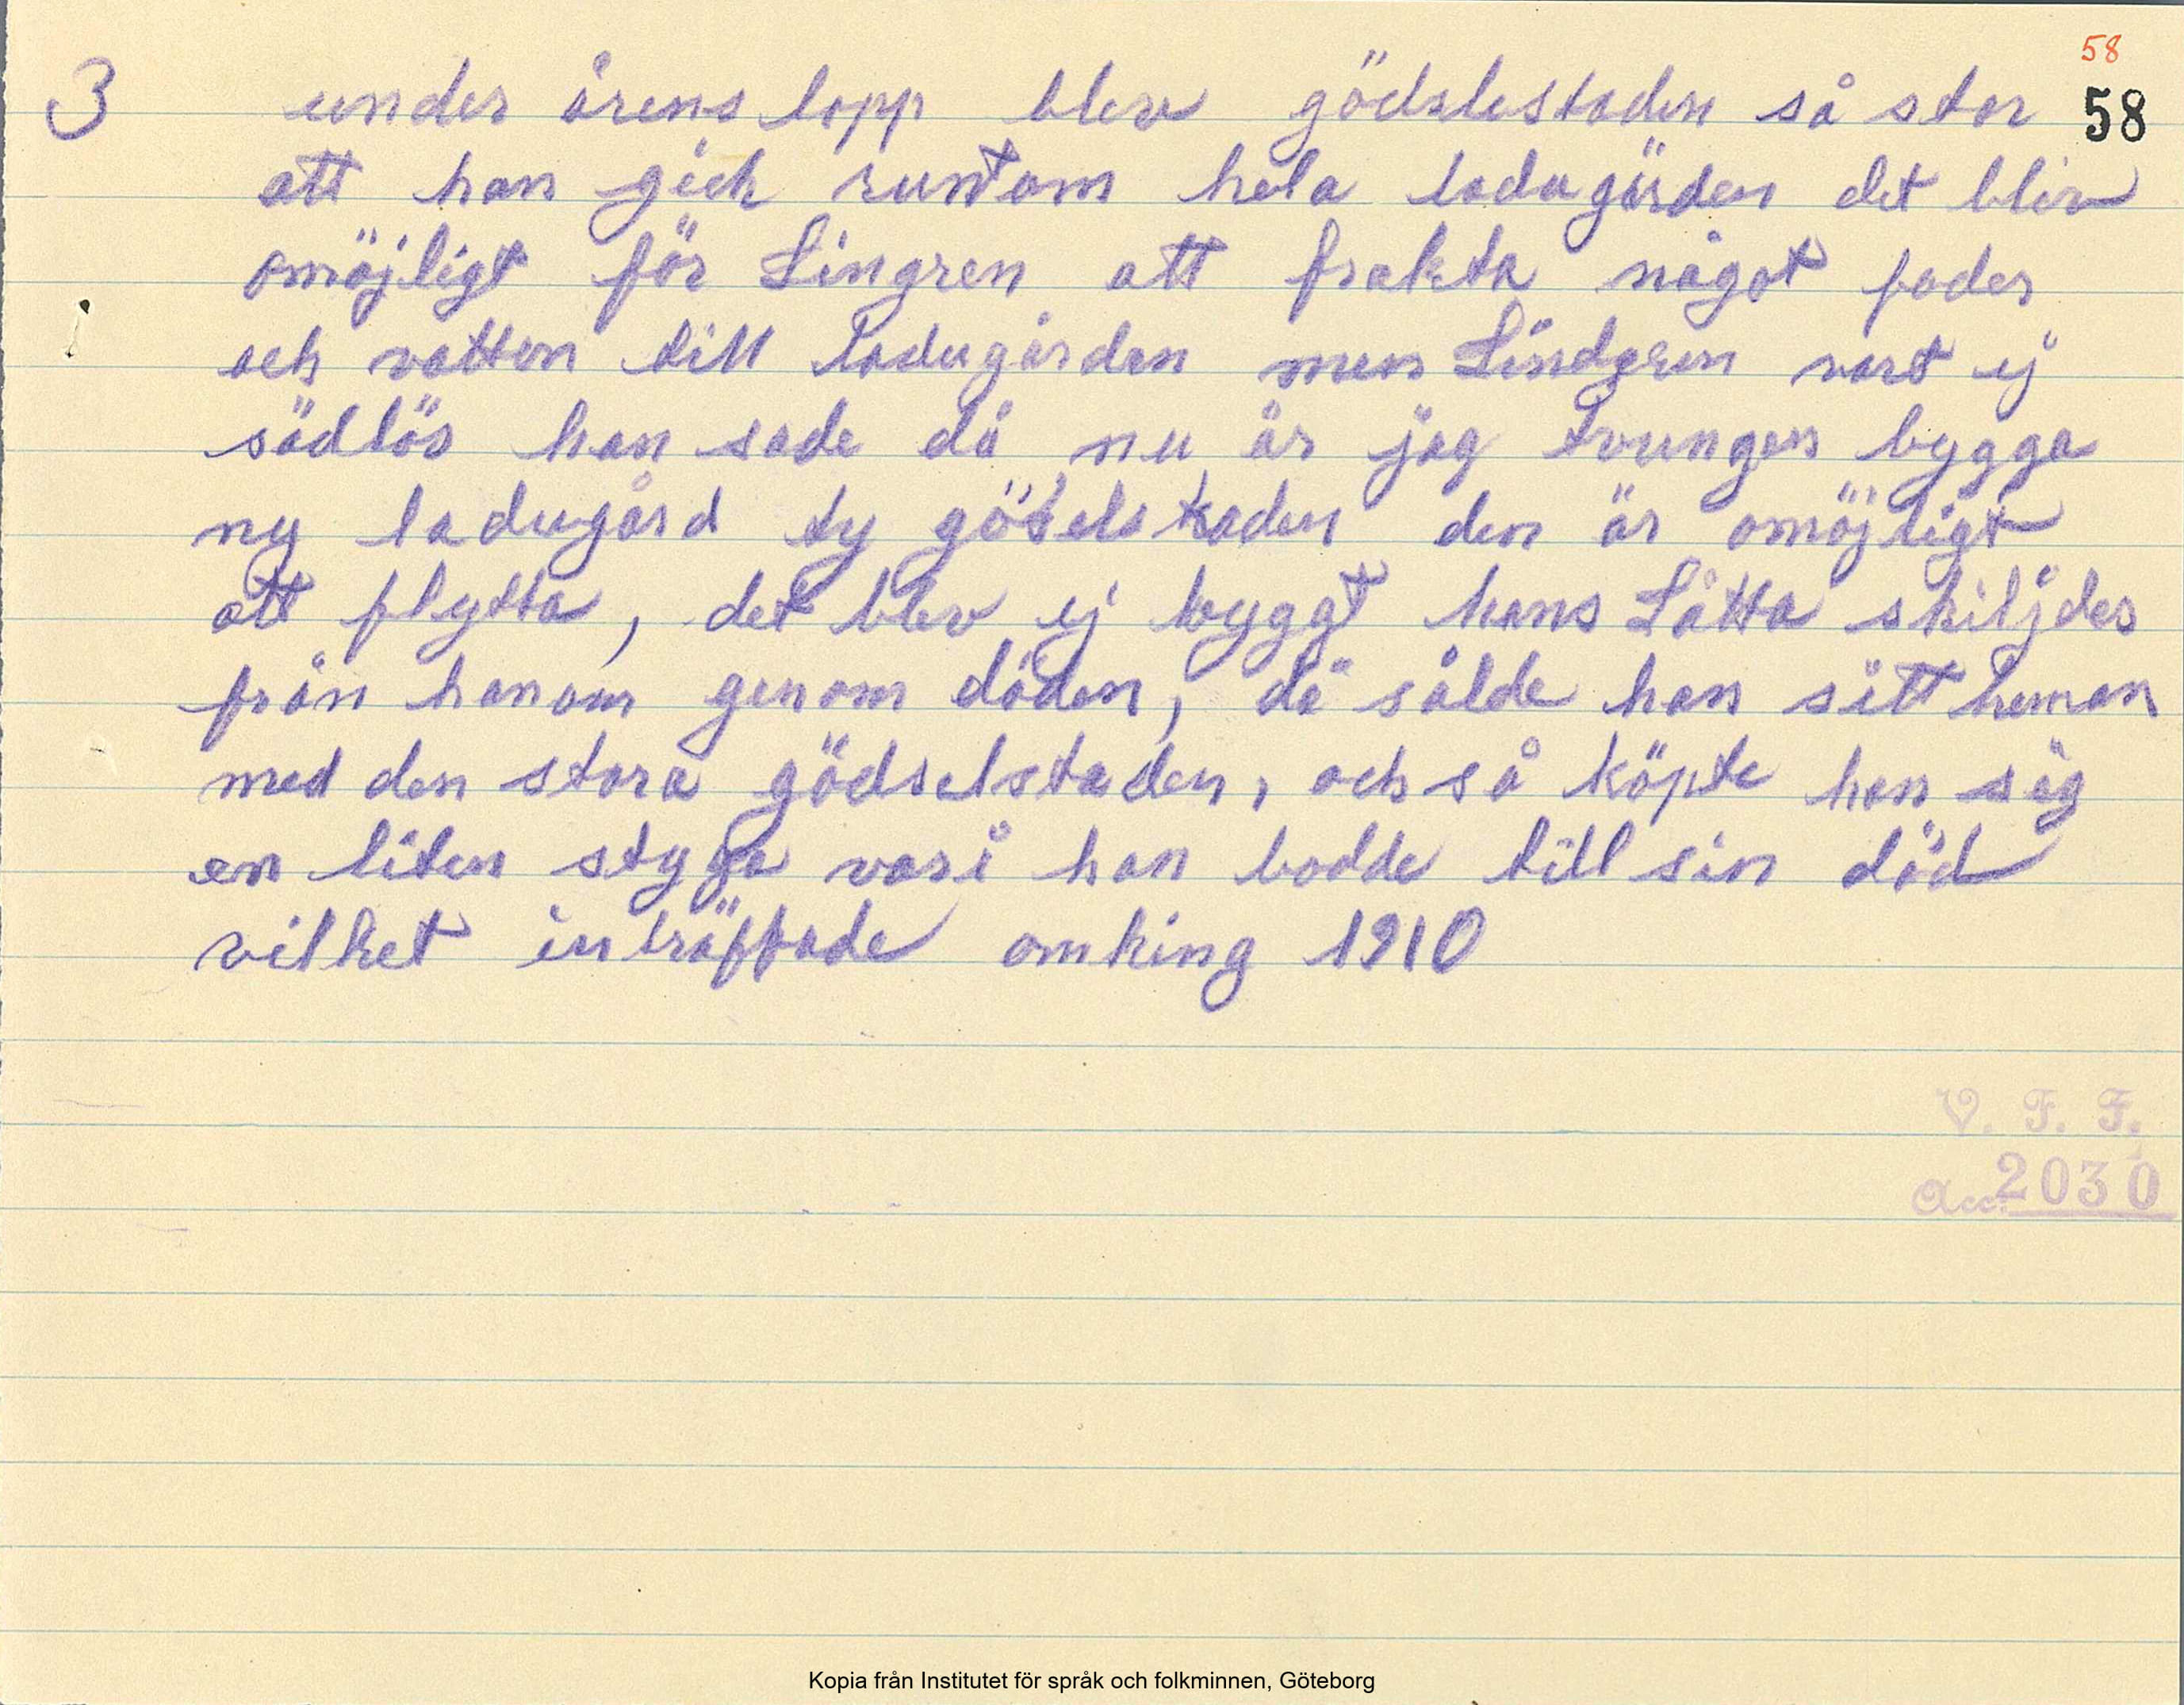 58
3 under årens lopp blev gödslestaden så stor 58
att han gick runtom hela ladugården det blev
omöjligt för Lingren att frakta något foder
och vatten till ladugården men Lindgren vart ej
södlös han sade då nu är jag tvungen bygga
ny ladugård ty gödselstaden den är omöjligt
att flytta, det blev ej byggt hans Låtta skiljdes
från honom genom döden, då sålde han sitt heman
med den stora gödselstaden, och så köpte han sig
en liten styga vari han bodde till sin död
vilket inträffade omking 1910
V. F. F.
Acc. 2030
Kopia från Institutet för språk och folkminnen, Göteborg